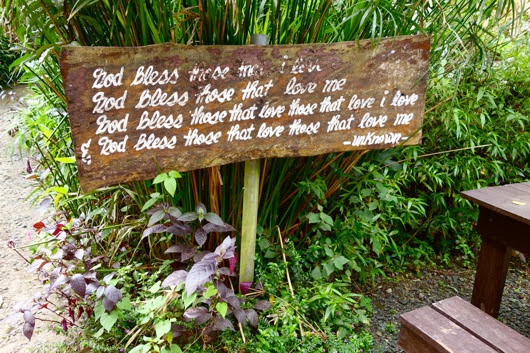 God bless those that i love
God bless those that love me
God bless those that love those that love i love
& God bless those that love those that love me
-unknown-